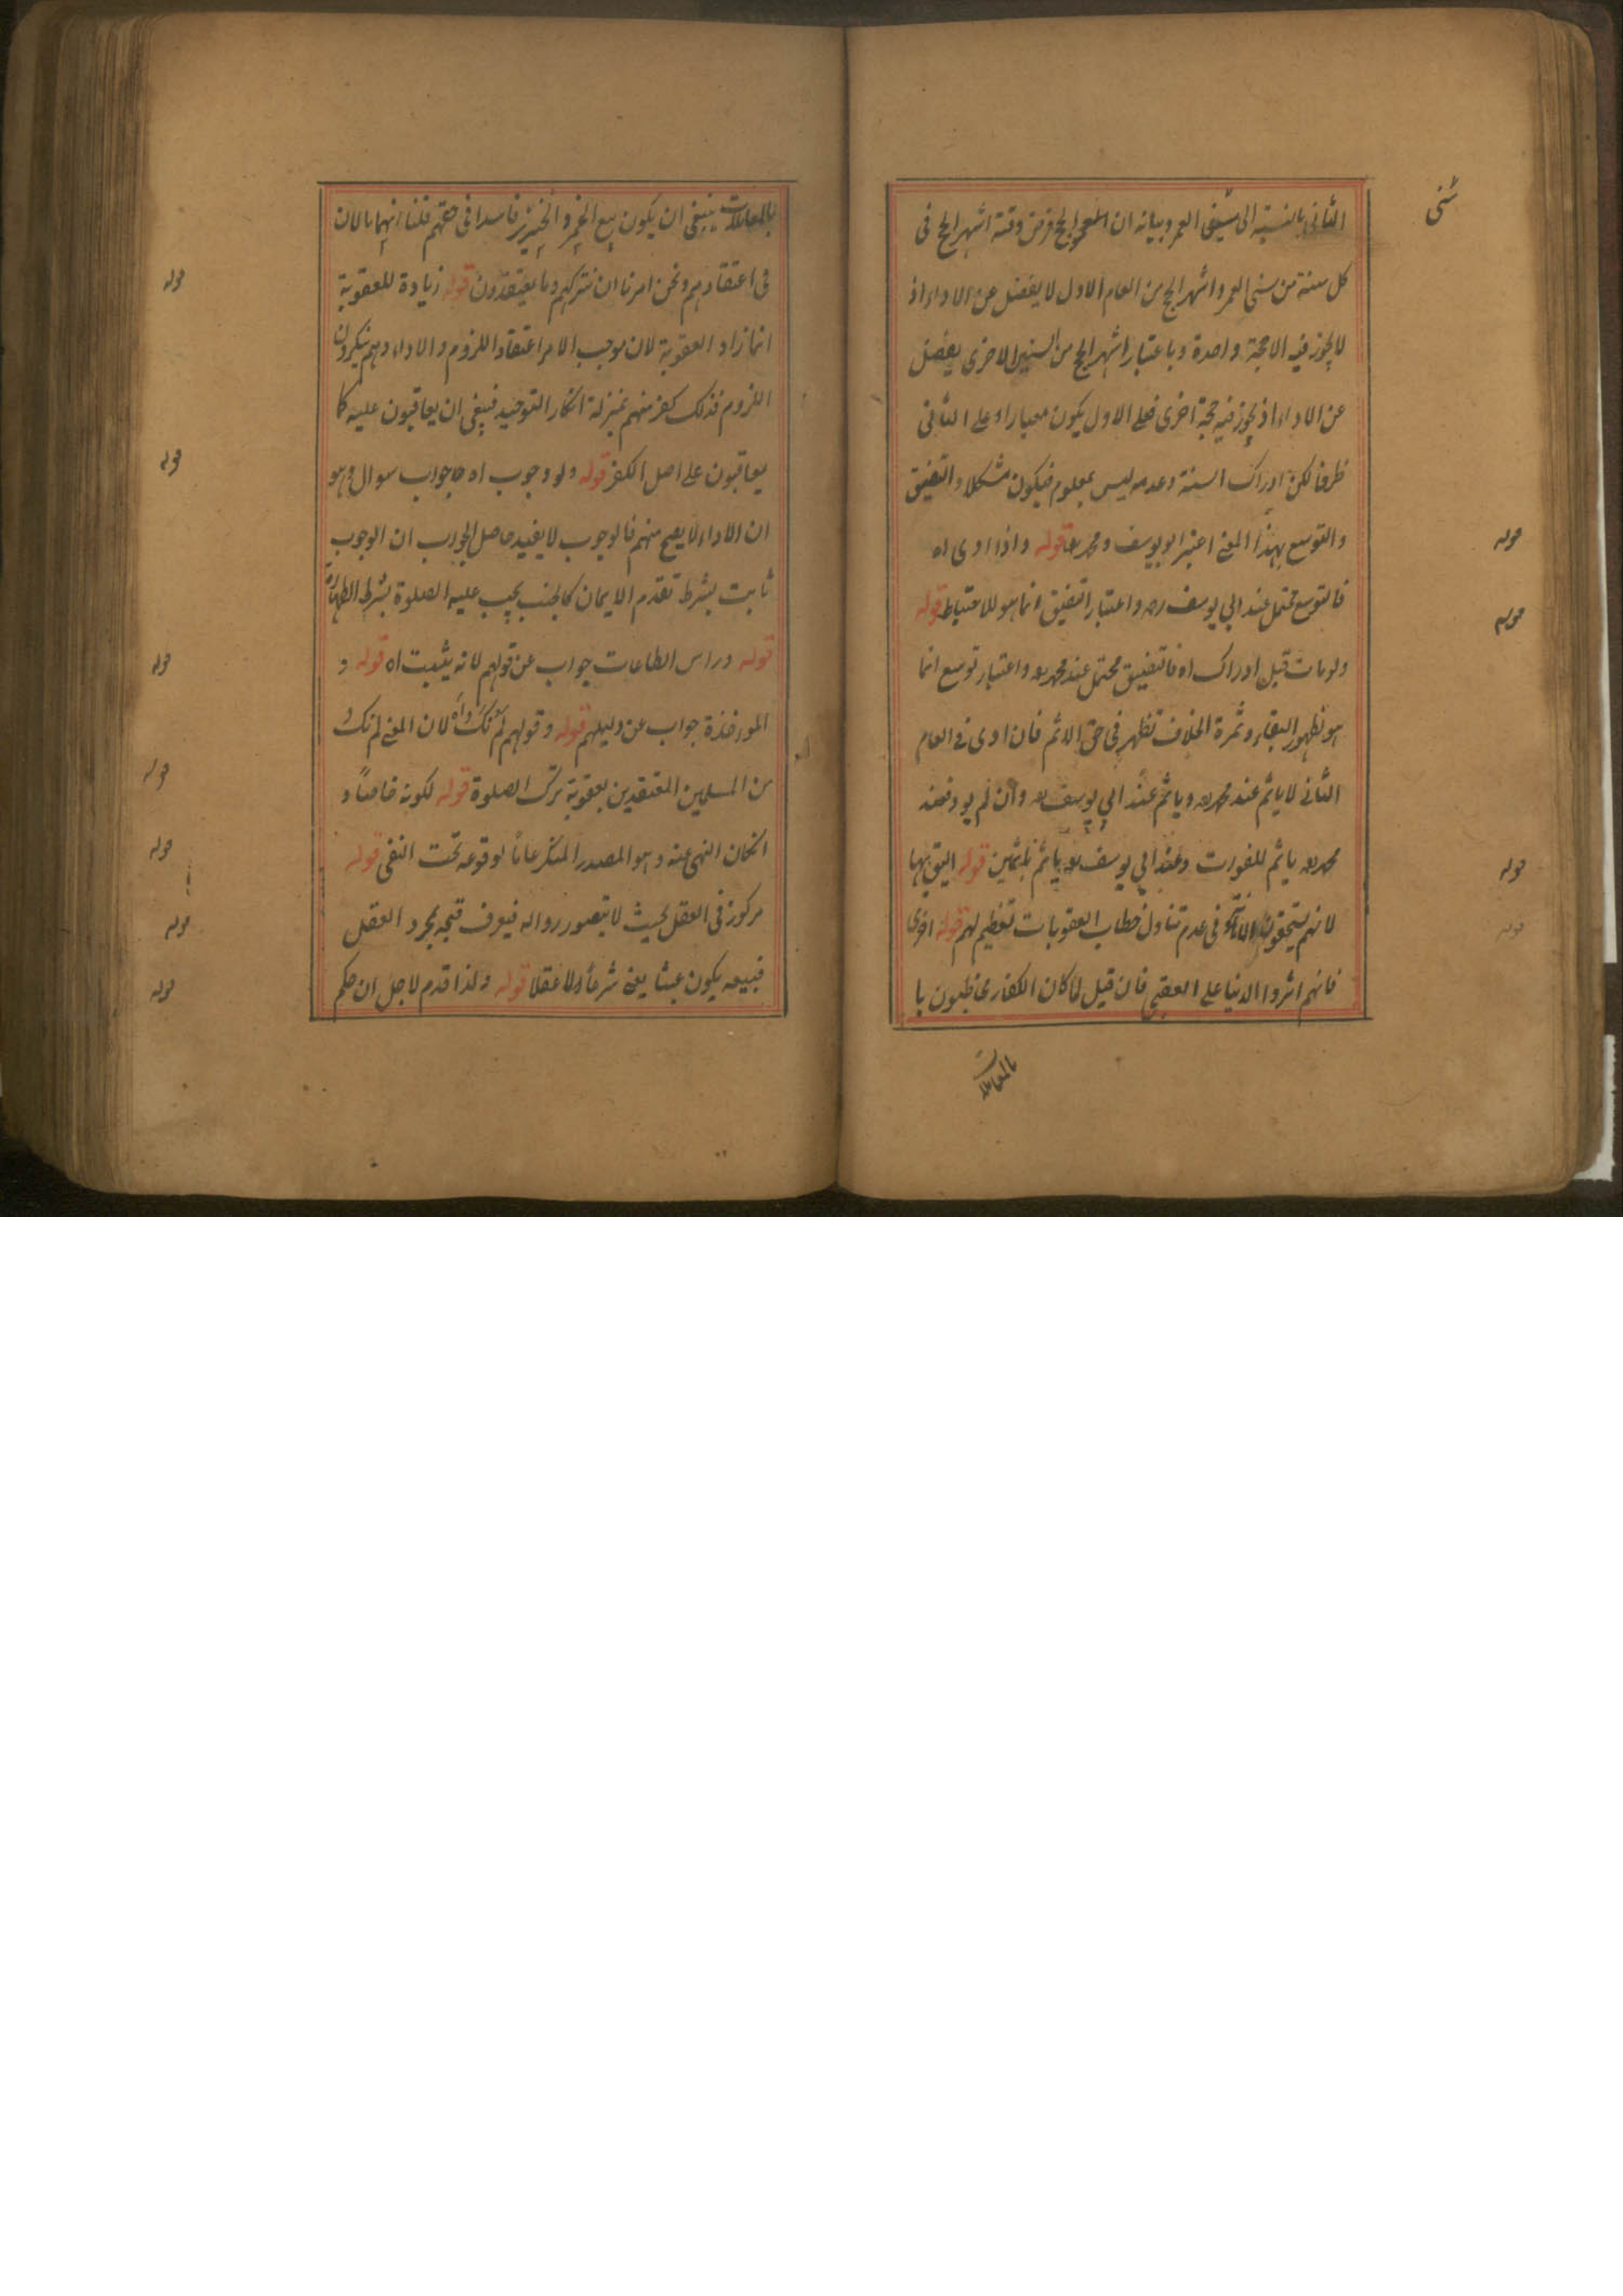 الثانى بالنسبة الى سنى العمر وبيانه ان الحج فرض وقته اشهر الحج فى
سنى
كل سنة من سنى العمر واشهر الحج من العام الاول لا يفضل عن الاداء اذ
لا يجوز فيه الا حجة واحدة وباعتبار اشهر الحج من السنين الاخرى يفضل
عن الاداء اذ يجوز فيه حجة اخرى فعلى الاول يكون معيارا وعلى الثانى
ظرفا لكن ادراك السنة وعدمه ليس بمعلوم فيكون مشكلا والتضيق
والتوسع بهذا المعنى اعتبر ابو يوسف ومحمد رح قوله واذا ادى اه
قوله
فالتوسع محتمل عند ابى يوسف ره واعتبار التضيق انما هو للاحتياط قوله
قوله
ولو مات قبل ادراك اه فالتضيق محتمل عند محمد رح واعتبار توسع انما
هو لظهور البقاء وثمرة الخلاف تظهر فى حق الاثم فان ادى فى العام
الثانى لا ياثم عند محمد رح وياثم عند ابى يوسف رح وان لم يود فعند
محمد رح ياثم للفوات وعند ابى يوسف رح ياثم باثمين قوله اليق بها
قوله
لانهم يستحقون فى عدم تناول خطاب العقوبات تعظيم لهم قوله اخرى
قوله
فانهم اثروا الدنيا على العقبى فان قيل لما كان الكفار مخاطبون با
بالمعاملات
بالمعاملات ينبغى ان يكون بيع الخمر والخنزير فاسدا فى حقهم قلنا انهما مالان
فى اعتقادهم ونحن امرنا ان نتركهم وما يعتقدون قوله زيادة للعقوبة
قوله
انما زاد العقوبة لان موجب الامر اعتقاد اللزوم والاداء وهم ينكرون
اللزوم فذلك كفر منهم بمنزلة انكار التوحيد فينبغى ان يعاقبون عليه كما
يعاقبون على اصل الكفر قوله ولو وجوب اه جواب سوال وهو
قوله
ان الاداء لا يصح منهم فالوجوب لا يفيد حاصل الجواب ان الوجوب
ثابت بشرط تقدم الايمان كالجنب يجب عليه الصلوة بشرط الطهارة
قوله وراس الطاعات جواب عن قولهم لانه يثبت اه قوله و
قوله
المواخذة جواب عن دليلهم قوله وقولهم لم نك اه لان المعنى لم نك
من المسلمين المعتقدين بعقوبة ترك الصلوة قوله لكونه خاصاً و
قوله
انكان النهى عنه وهو المصدر المنكر عاماً لوقوعه تحت النفى قوله
قوله
مركوز فى العقل بحيث لا يتصور زواله فيعرف قبحه بمجرد العقل
قوله
فبيعه يكون عبثا يعنى شرعاً لا عقلا قوله ولذا قدم لاجل ان حكم
قوله